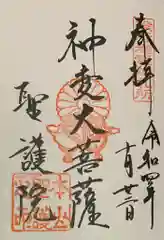 奉拝
令和四年
十月廿三日
神変大菩薩
聖護院